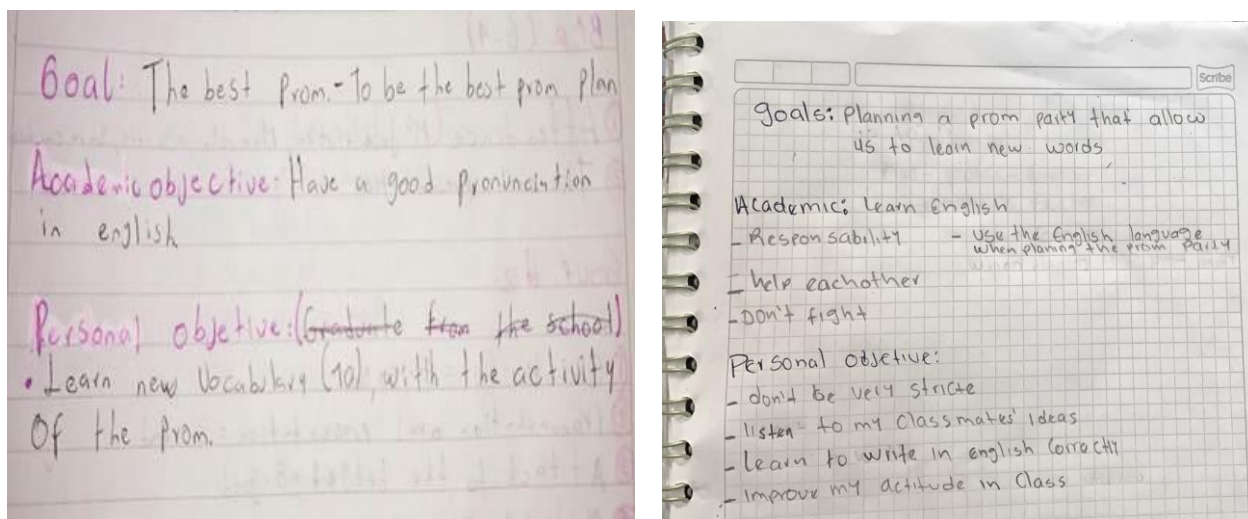 Goal: The best Prom.- To be the best prom plan
Academic objective: Have a good pronunciation
in english
Personal objetive: (Graduate from the school)
• Learn new Vocabulary (10), with the activity
Of the Prom.
Scribe
goals: Planning a prom party that allow
us to learn new words
Academic: Learn English
- Responsability - use the English language
when planing the prom Party
- help eachother
- Don't fight
Personal objetive:
- don't be very stricte
- listen to my classmates' ideas
- Learn to write in english correctly
- improve my actitude in Class